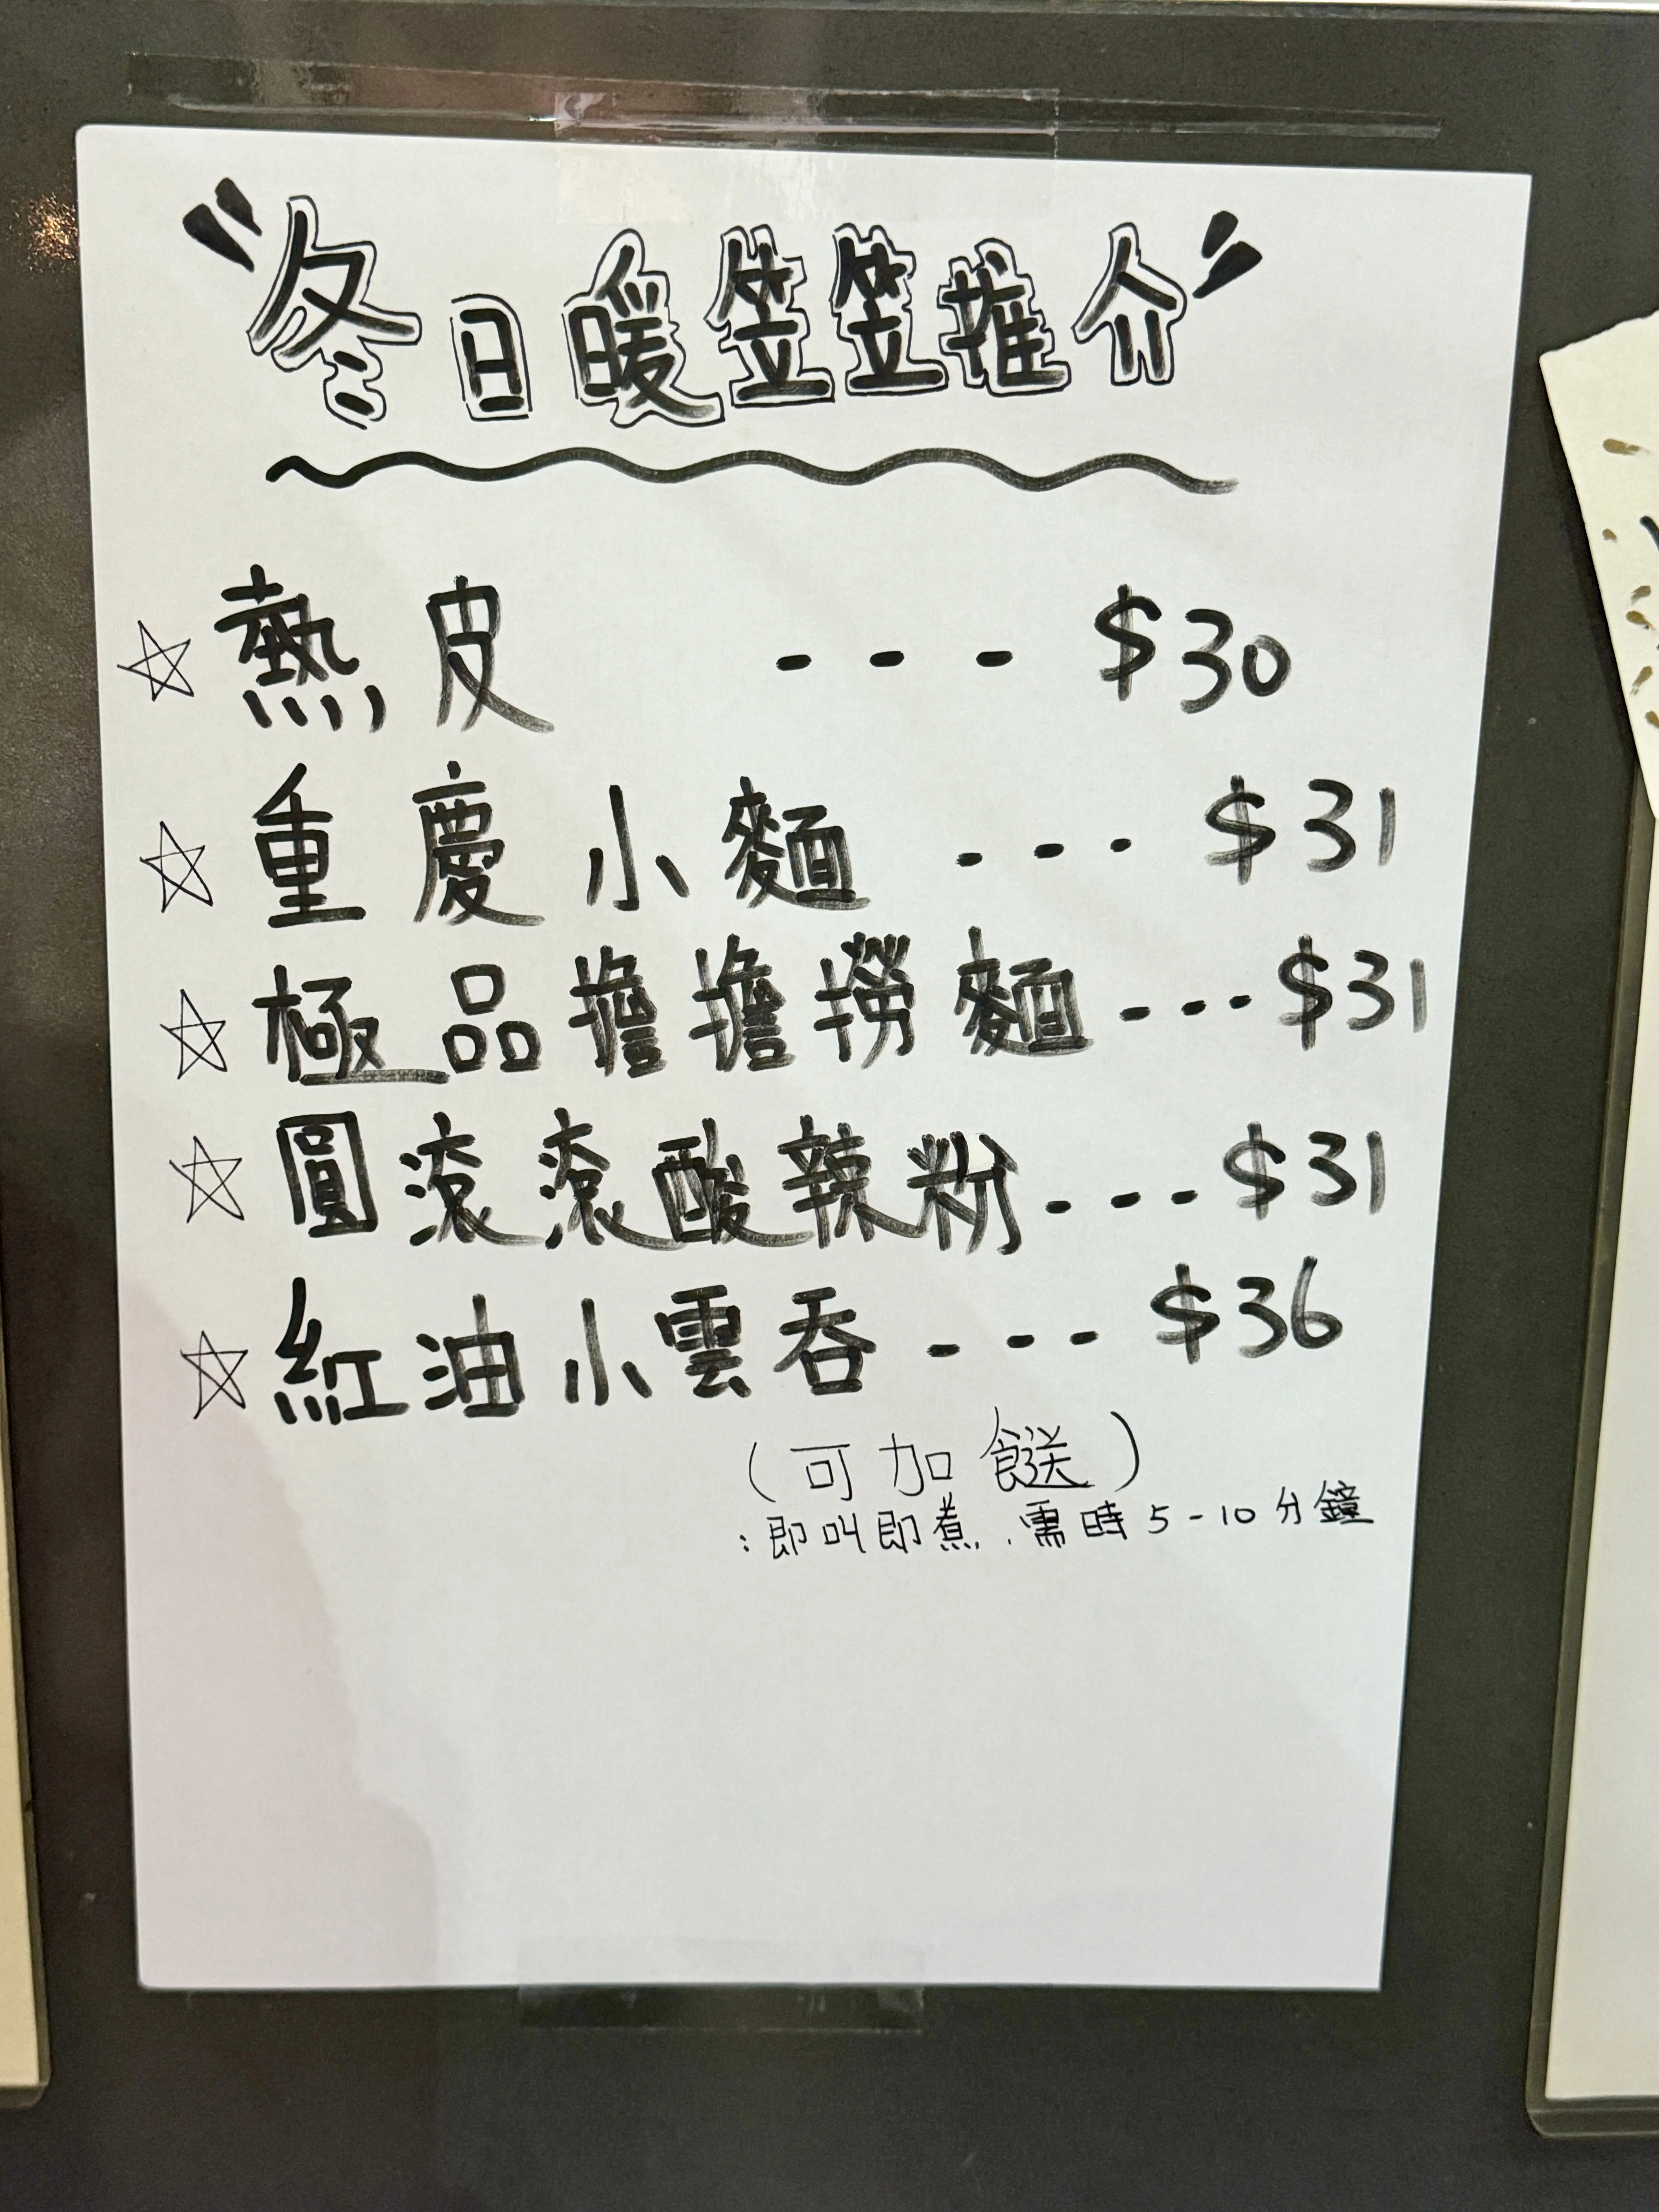 "冬日暖笠笠推介"
☆ 熱皮 --- $30
☆ 重慶小麵 --- $31
☆ 極品擔擔撈麵 --- $31
☆ 圓滾滾酸辣粉 --- $31
☆ 紅油小雲吞 --- $36
(可加餸)
:即叫即煮.需時5-10分鐘